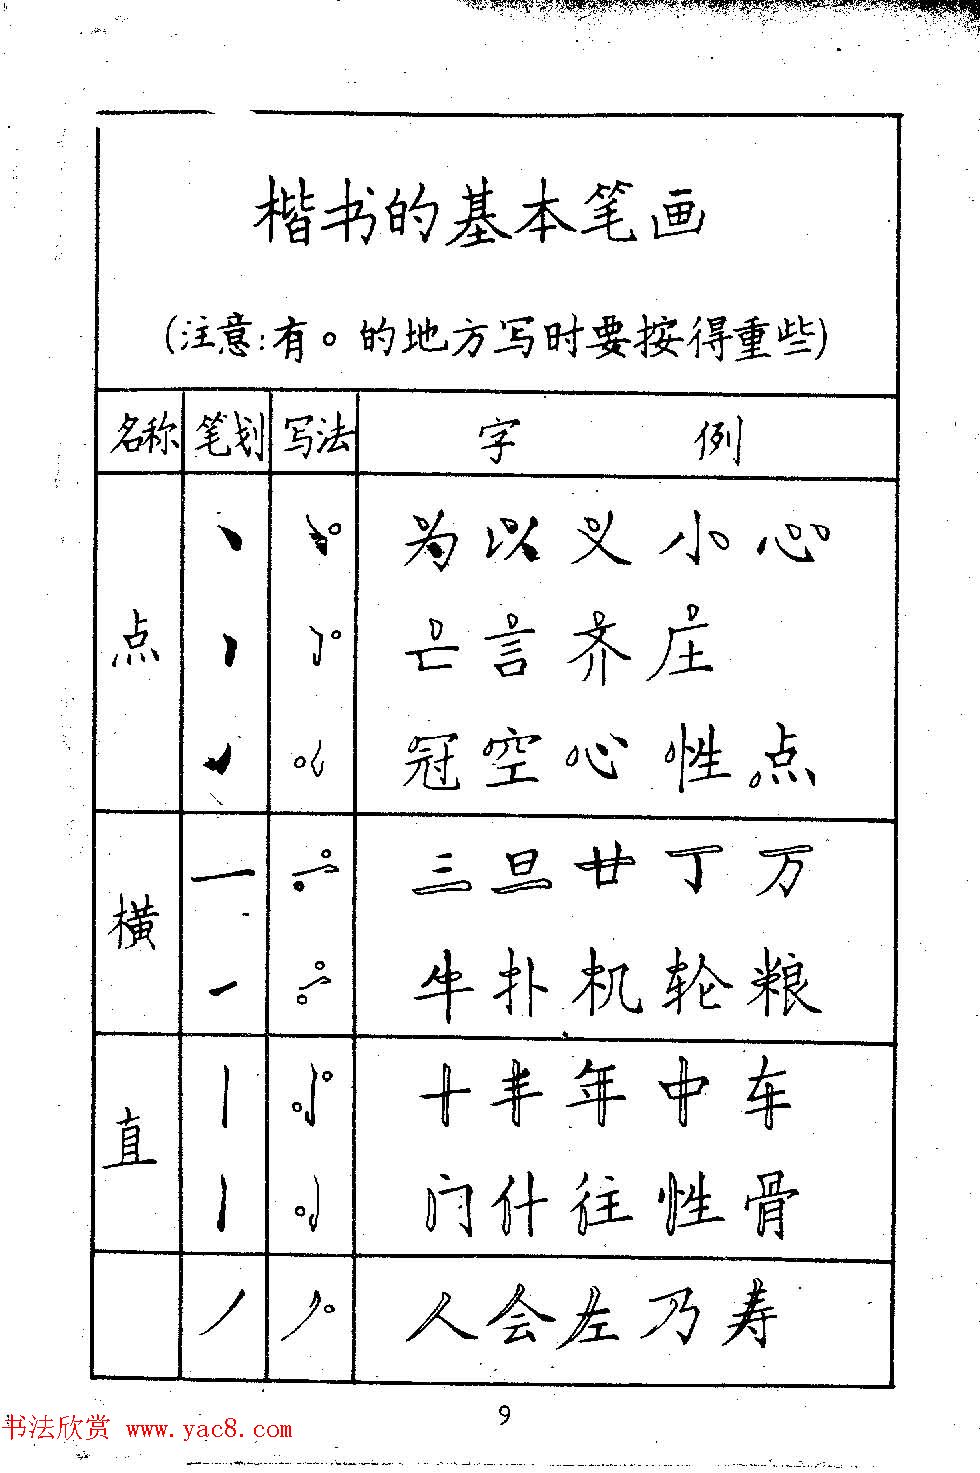 楷书的基本笔画
(注意:有。的地方写时要按得重些)
名称 笔划 写法 字 例
为以义小心
点 亡言齐庄
冠空心性点
三旦廿丁万
横
牛扑机轮粮
十丰年中车
直
门什往性骨
人会左乃寿
9
书法欣赏 www.yac8.com